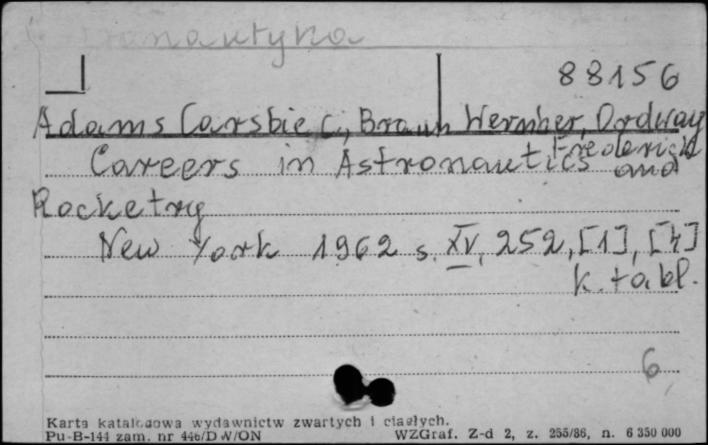 Astronautyka
88156
Adams Carsbie C., Braun Wernher, Ordway Frederick
Careers in Astronautics and
Rocketry
New York 1962 s. XV, 252, [1], [4]
k. tabl.
6
Karta katalogowa wydawnictw zwartych i ciągłych.
Pu-B-144 zam. nr 446/DW/ON WZGraf. Z-d 2, z. 255/86, n. 6 350 000